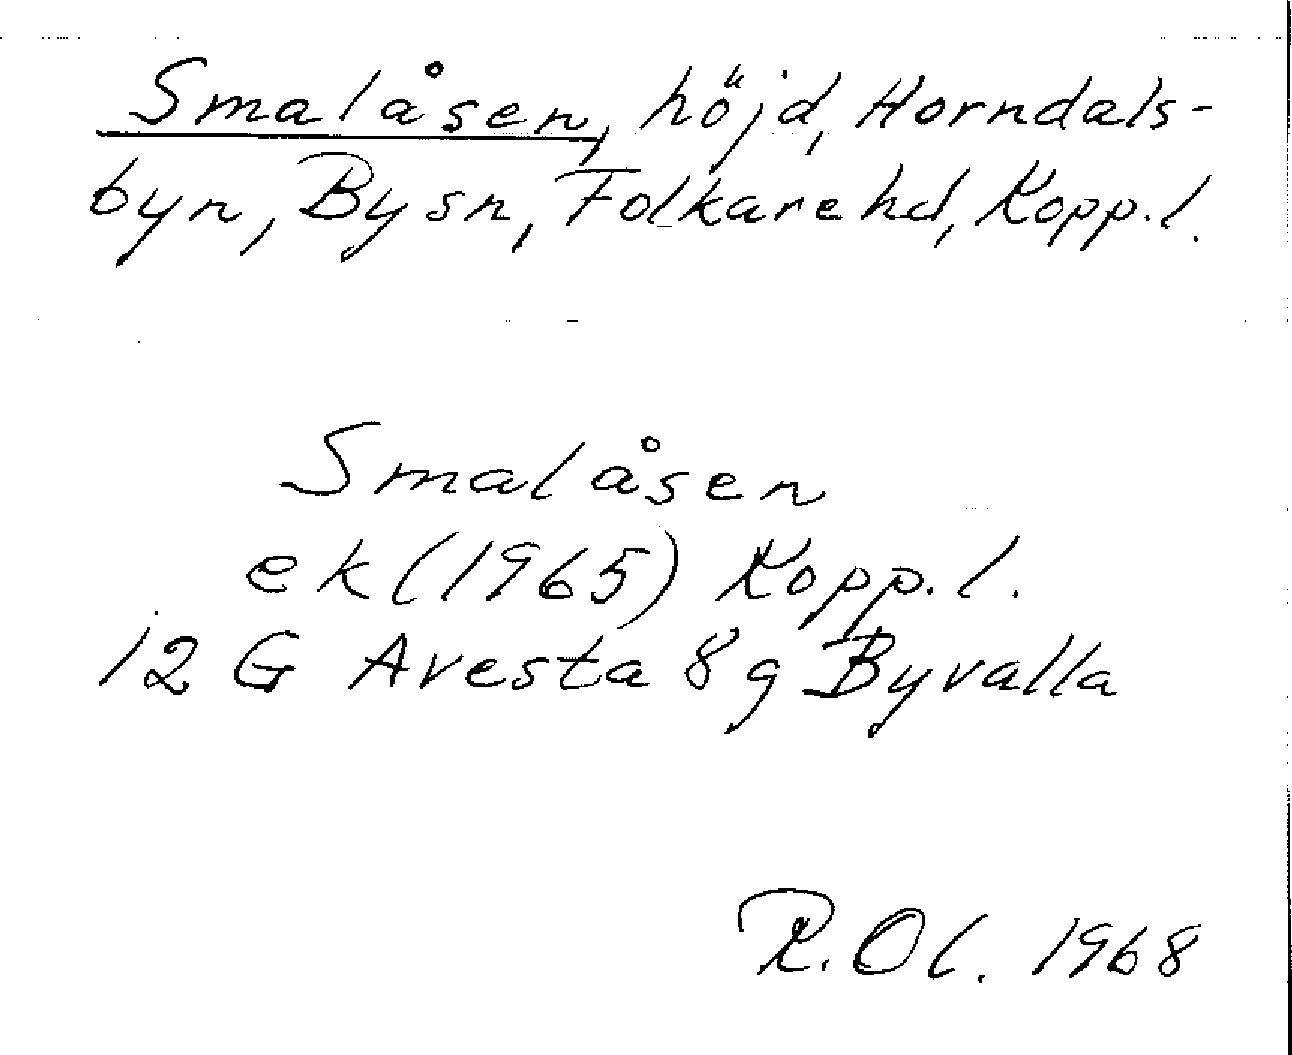 Smalåsen, höjd, Horndals-
byn, By sn, Folkare hd, Kopp. l.
Smalåsen
ek (1965) Kopp. l.
12 G Avesta 8 g Byvalla
R. Ol. 1968